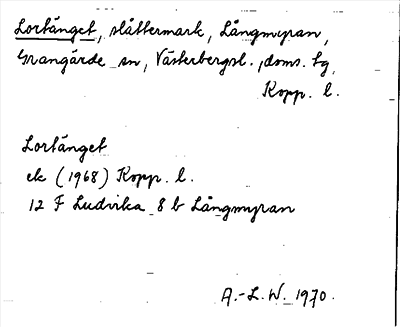 Lortänget, slåttermark, Långmyran,
Grangärde sn, Västerbergsl., doms. tg,
Kopp. l.
Lortänget
ek (1968) Kopp. l.
12 F Ludvika 8 b Långmyran
A.-L.W. 1970.